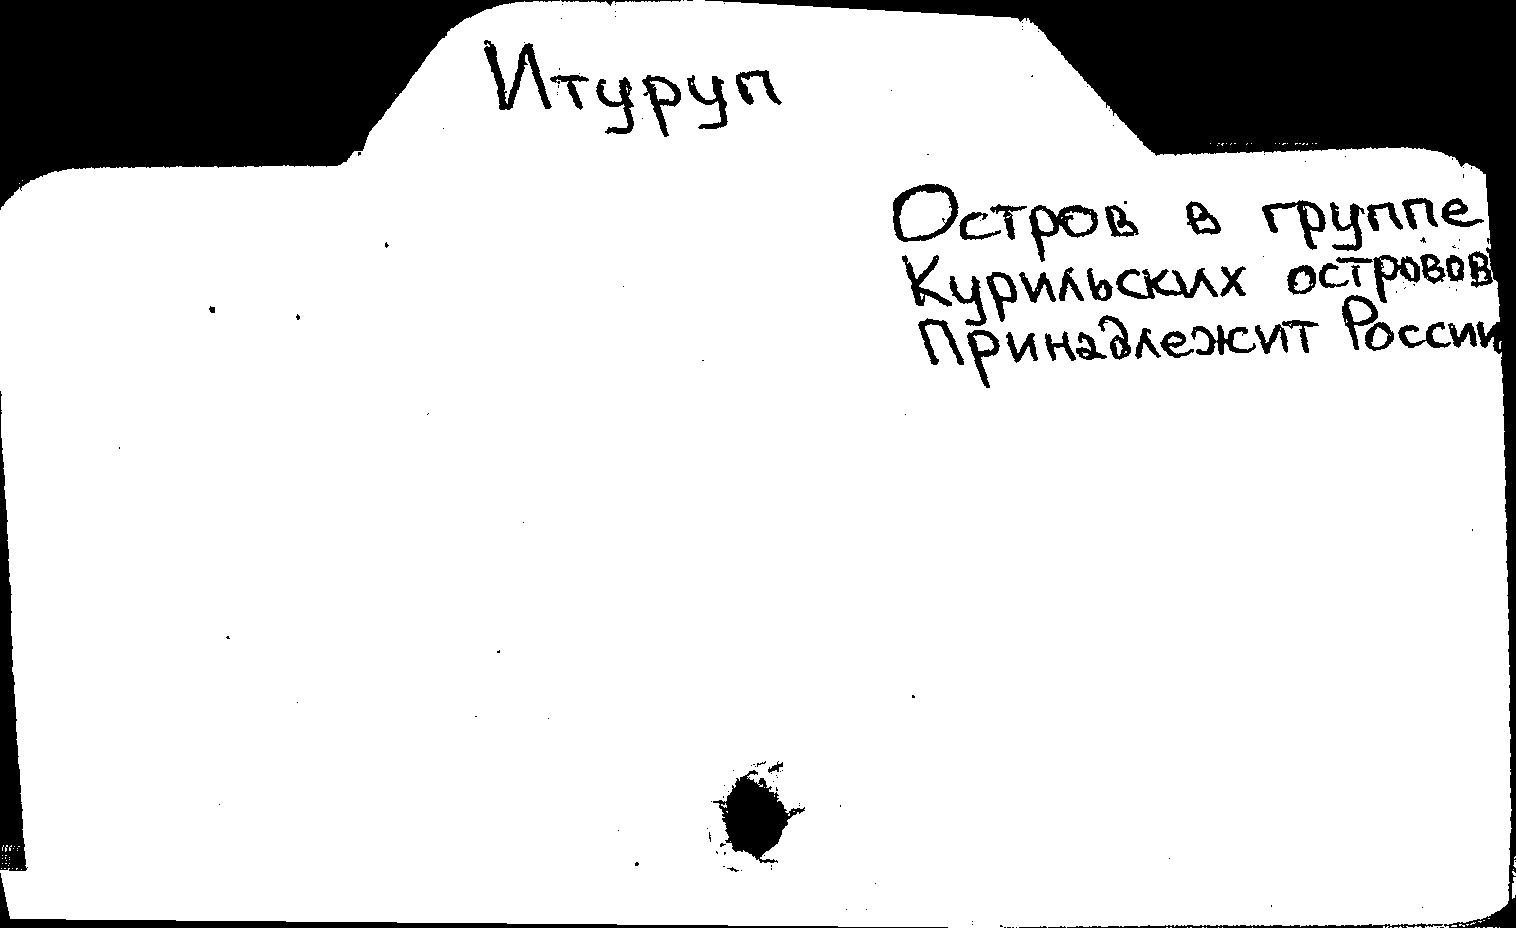 Итуруп
Остров в группе
Курильских островов
Принадлежит России